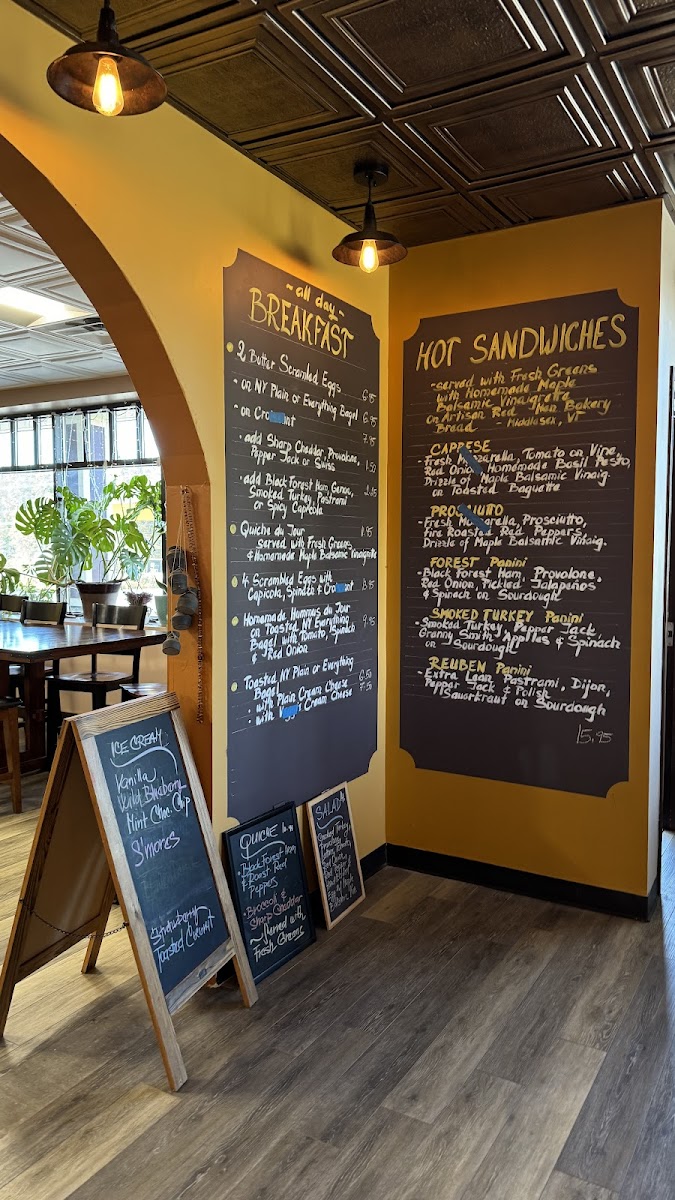 ~ all day ~
BREAKFAST
2 Butter Scrambled Eggs
- on NY Plain or Everything Bagel
- on Cro nt
- add Sharp Cheddar, Provolone,
Pepper Jack or Swiss 1.50
- add Black Forest Ham, Genoa,
Smoked Turkey, Pastrami
or Spicy Capicola
Quiche du Jour
served with Fresh Greens
& Homemade Maple Balsamic Vinaigrette
4 Scrambled Eggs with
Capicola, Spinach & Cro nt
Homemade Hummus du Jour
on Toasted NY Everything
Bagel with Tomato, Spinach
& Red Onion
Toasted NY Plain or Everything
Bagel
: with Plain Cream Cheese
: with Cream Cheese
HOT SANDWICHES
- served with Fresh Greens
with Homemade Maple
Balsamic Vinaigrette
on Artisan Red Hen Bakery
Bread - Middlesex, VT
CAPRESE
- Fresh Mozzarella, Tomato on Vine,
Red Onion, Homemade Basil Pesto,
Drizzle of Maple Balsamic Vinaig.
on Toasted Baguette
PROSCIUTTO
- Fresh Mozzarella, Prosciutto,
Fire Roasted Red Peppers,
Drizzle of Maple Balsamic Vinaig.
FOREST Panini
- Black Forest Ham, Provolone,
Red Onion, Pickled Jalapeños
& Spinach on Sourdough
SMOKED TURKEY Panini
- Smoked Turkey, Pepper Jack,
Granny Smith Apples & Spinach
on Sourdough
REUBEN Panini
- Extra Lean Pastrami, Dijon,
Pepper Jack & Polish
Sauerkraut on Sourdough
15.95
ICE CREAM
Vanilla
Wild Blueberry
Mint Choc. Chip
S'mores
Strawberry
Toasted Coconut
QUICHE
- Black Forest Ham
& Roast Red
Peppers
- Broccoli &
Sharp Cheddar
~ Served with
Fresh Greens
SALAD
Smoked Turkey